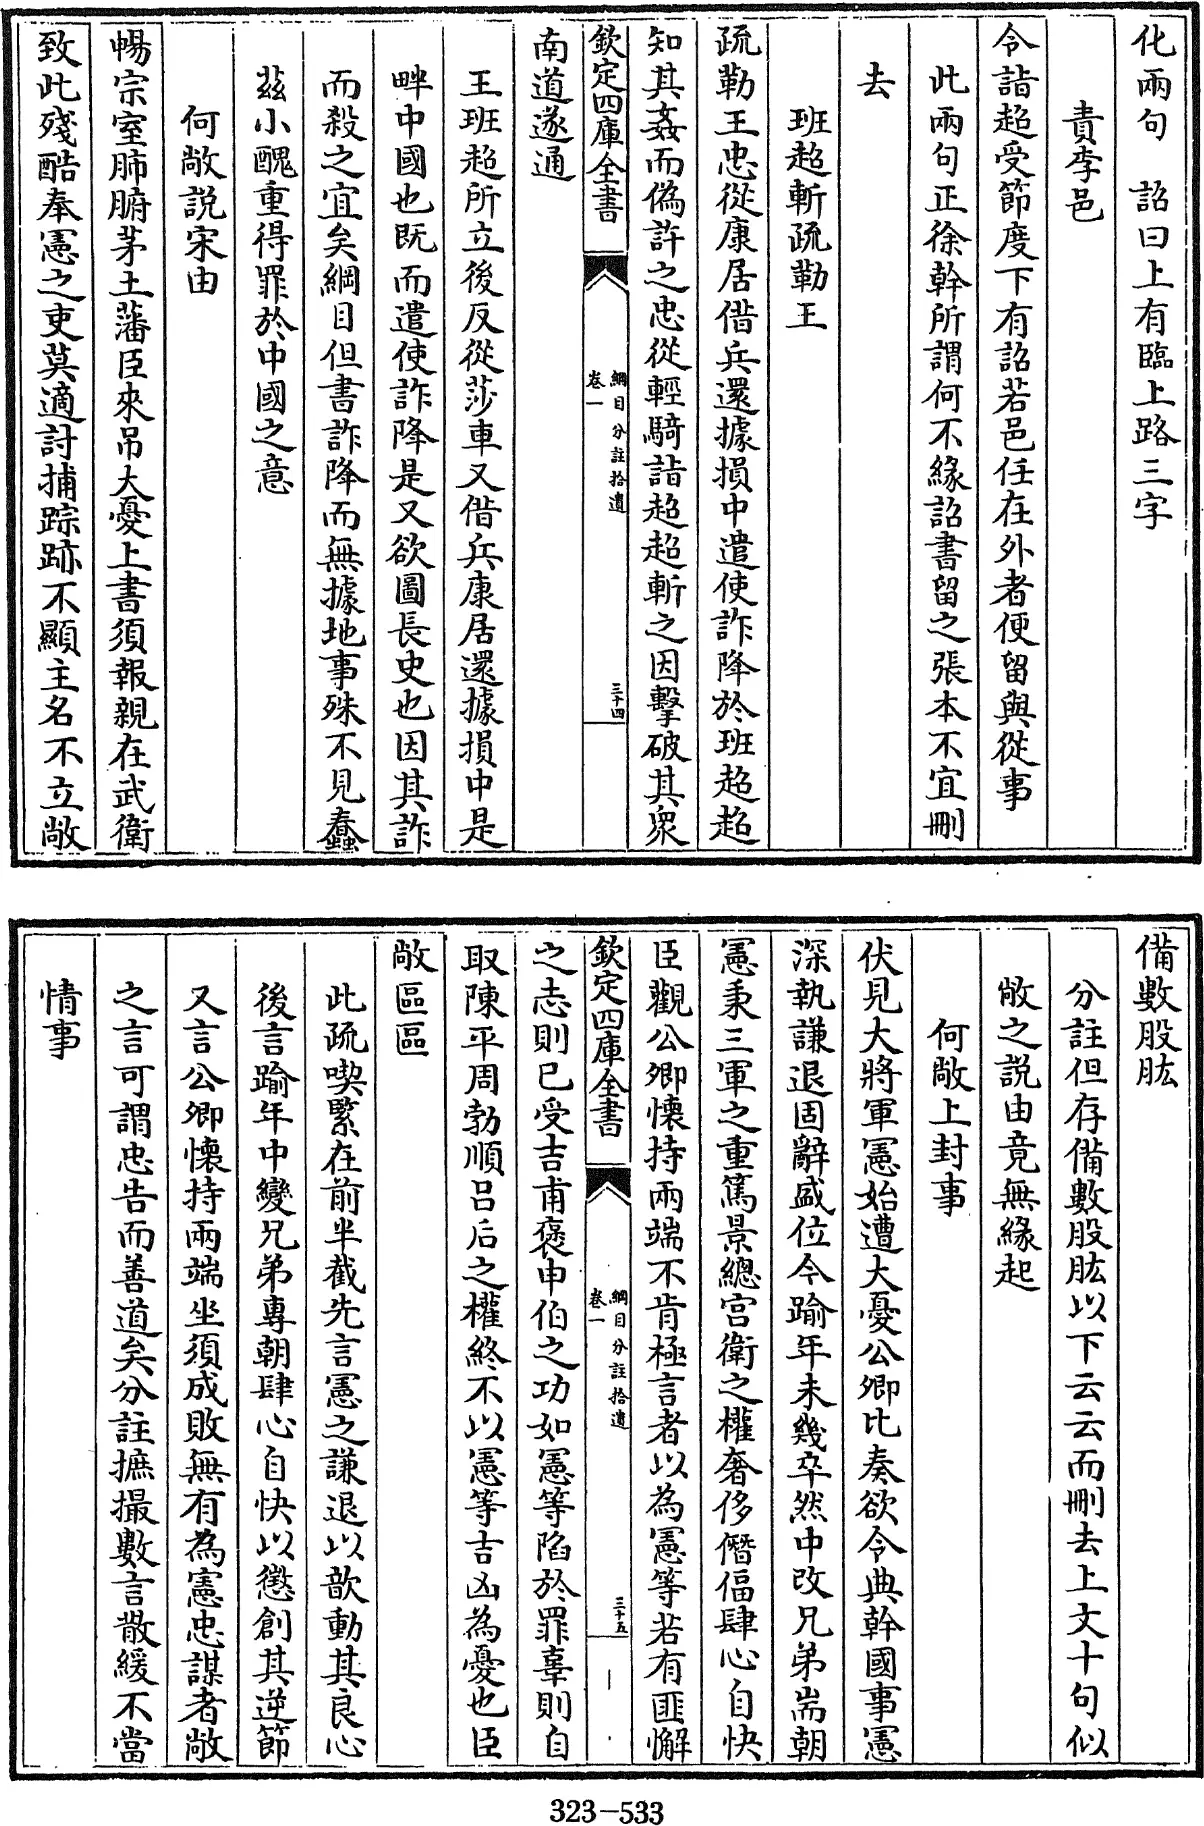 化兩句　詔曰上有臨上路三字
責李邑
令詣超受節度下有詔若邑任在外者便留與從事
此兩句正徐幹所謂何不緣詔書留之張本不宜刪
去
班超斬疏勒王
疏勒王忠從康居借兵還據損中遣使詐降於班超超
知其姦而偽許之忠從輕騎詣超超斬之因擊破其衆
欽定四庫全書
綱目分註拾遺
卷一
三十四
南道遂通
王班超所立後反從莎車又借兵康居還據損中是
畔中國也既而遣使詐降是又欲圖長史也因其詐
而殺之宜矣綱目但書詐降而無據地事殊不見蠢
茲小醜重得罪於中國之意
何敞說宋由
暢宗室肺腑茅土藩臣來吊大憂上書須報親在武衛
致此殘酷奉憲之吏莫適討捕踪跡不顯主名不立敞
備數股肱
分註但存備數股肱以下云云而刪去上文十句似
敞之說由竟無緣起
何敞上封事
伏見大將軍憲始遭大憂公卿比奏欲令典幹國事憲
深執謙退固辭盛位今踰年未幾卒然中改兄弟耑朝
憲秉三軍之重篤景總宮衛之權奢侈僭偪肆心自快
臣觀公卿懷持兩端不肯極言者以為憲等若有匪懈
欽定四庫全書
綱目分註拾遺
卷一
三十五
之志則已受吉甫褒申伯之功如憲等陷於罪辜則自
取陳平周勃順呂后之權終不以憲等吉凶為憂也臣
敞區區
此疏喫緊在前半截先言憲之謙退以歆動其良心
後言踰年中變兄弟專朝肆心自快以懲創其逆節
又言公卿懷持兩端坐須成敗無有為憲忠謀者敞
之言可謂忠告而善道矣分註摭撮數言散緩不當
情事
323-533